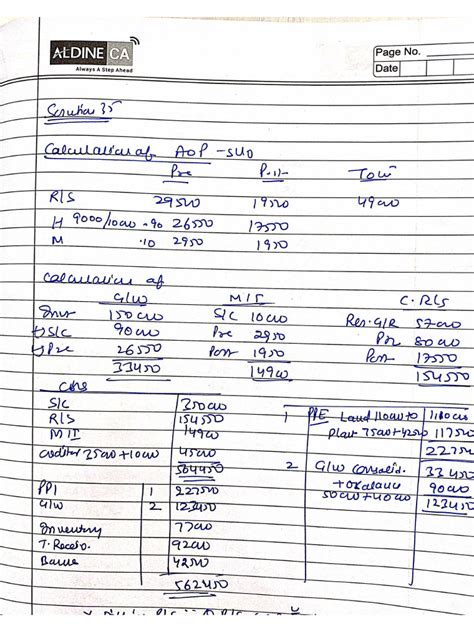 ALDINE CA
Always A Step Ahead
Page No.
Date
Solution 35
Calculation of AOP - SUD
Pre Post Total
R/S 29500 19500 49000
H 9000/10000 .90 26550 17550
M .10 2950 1950
Calculation of
G/W M/I C. R/S
Inv 150000 S/C 10000 Res. G/R 57000
S/C 90000 Pre 2950 80000
Pre 26550 Post 1950 Post 17550
33450 14900 154550
CBS
S/C 350000
R/S 154550
M/I 14900
Creditor 35000 + 10000 45000
564450
PPE 1 227500
G/W 2 123450
Inventory 77000
T. Receiv. 92000
42500
562450
1 PPE Land 110000 110000
Plant 75000 + 42500 117500
227500
2 G/W consolid. 33450
50000 + 40000 90000
123450